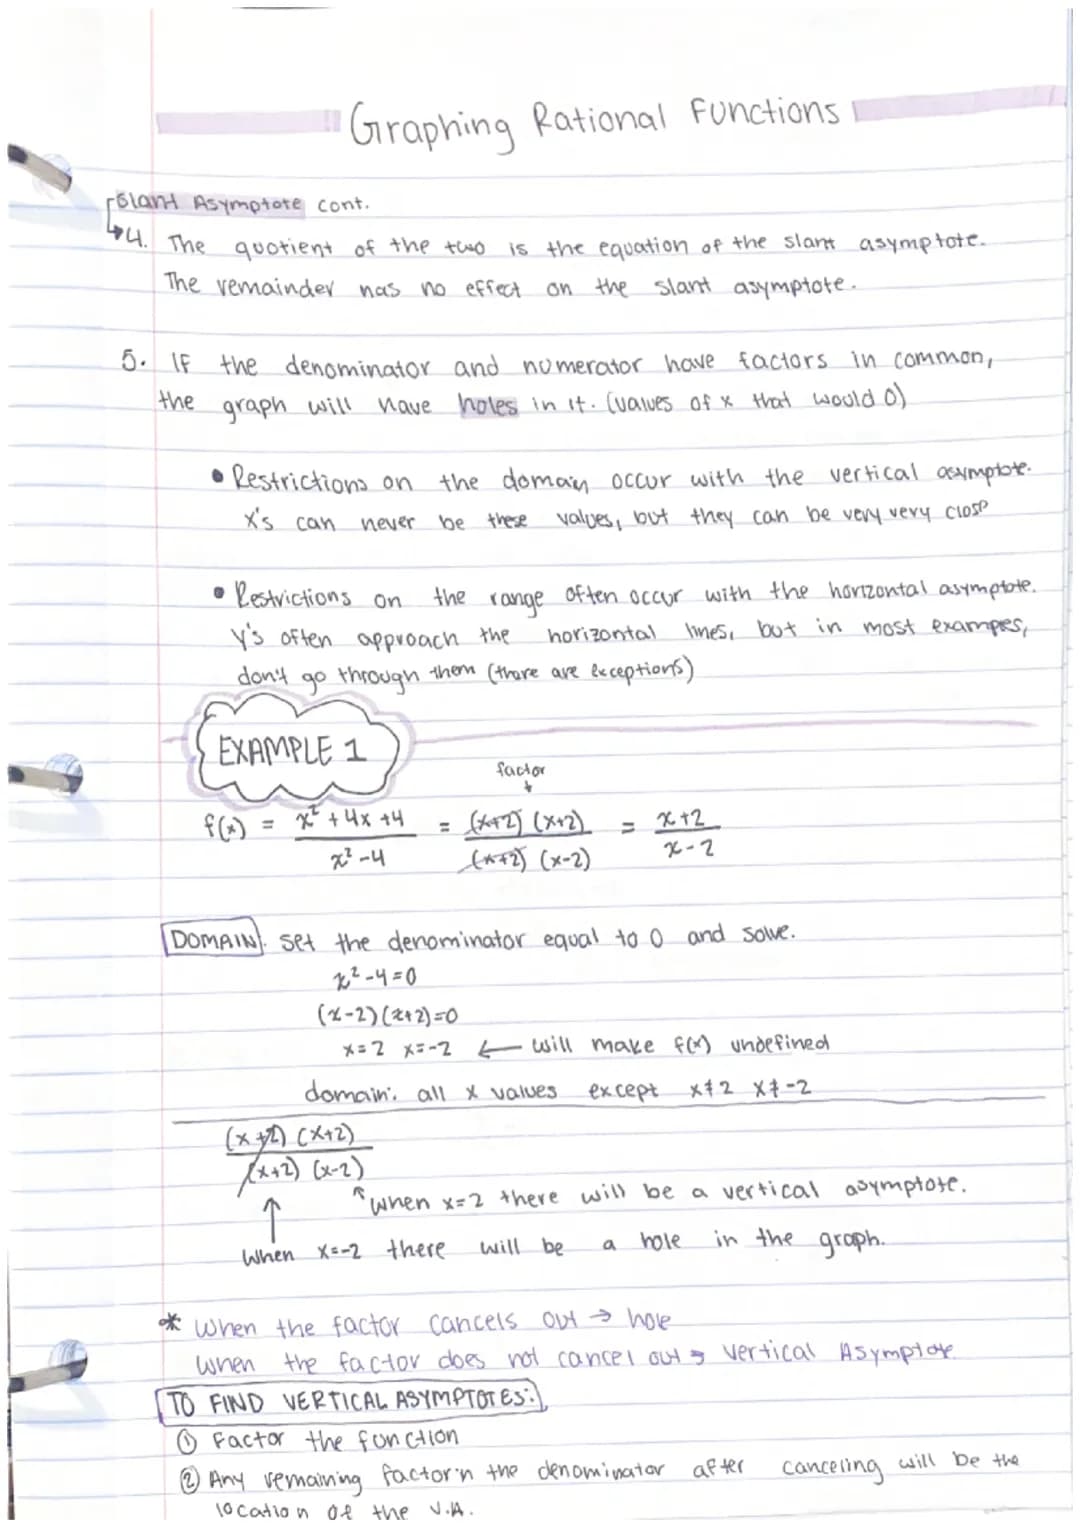 Graphing Rational Functions
Slant Asymptote cont.
4. The quotient of the two is the equation of the slant asymptote.
The remainder has no effect on the slant asymptote.
5. If the denominator and numerator have factors in common,
the graph will have holes in it. (values of x that would 0)
• Restrictions on the domain occur with the vertical asymptote.
x's can never be these values, but they can be very very close
• Restrictions on the range often occur with the horizontal asymptote.
y's often approach the horizontal lines, but in most examples,
don't go through them (there are exceptions)
EXAMPLE 1
factor
↓
f(x) = x² + 4x + 4 / x² - 4 = (x+2) (x+2) / (x+2) (x-2) = x+2 / x-2
DOMAIN: set the denominator equal to 0 and solve.
x² - 4 = 0
(x-2)(x+2)=0
x=2 x=-2 ← will make f(x) undefined
domain: all x values except x≠2 x≠-2
(x+2) (x+2)
(x+2) (x-2)
↑ when x=2 there will be a vertical asymptote.
↑
When x=-2 there will be a hole in the graph.
* When the factor cancels out → hole
When the factor does not cancel out → Vertical Asymptote
TO FIND VERTICAL ASYMPTOTES:
① Factor the function
② Any remaining factor in the denominator after canceling will be the
location of the V.A.